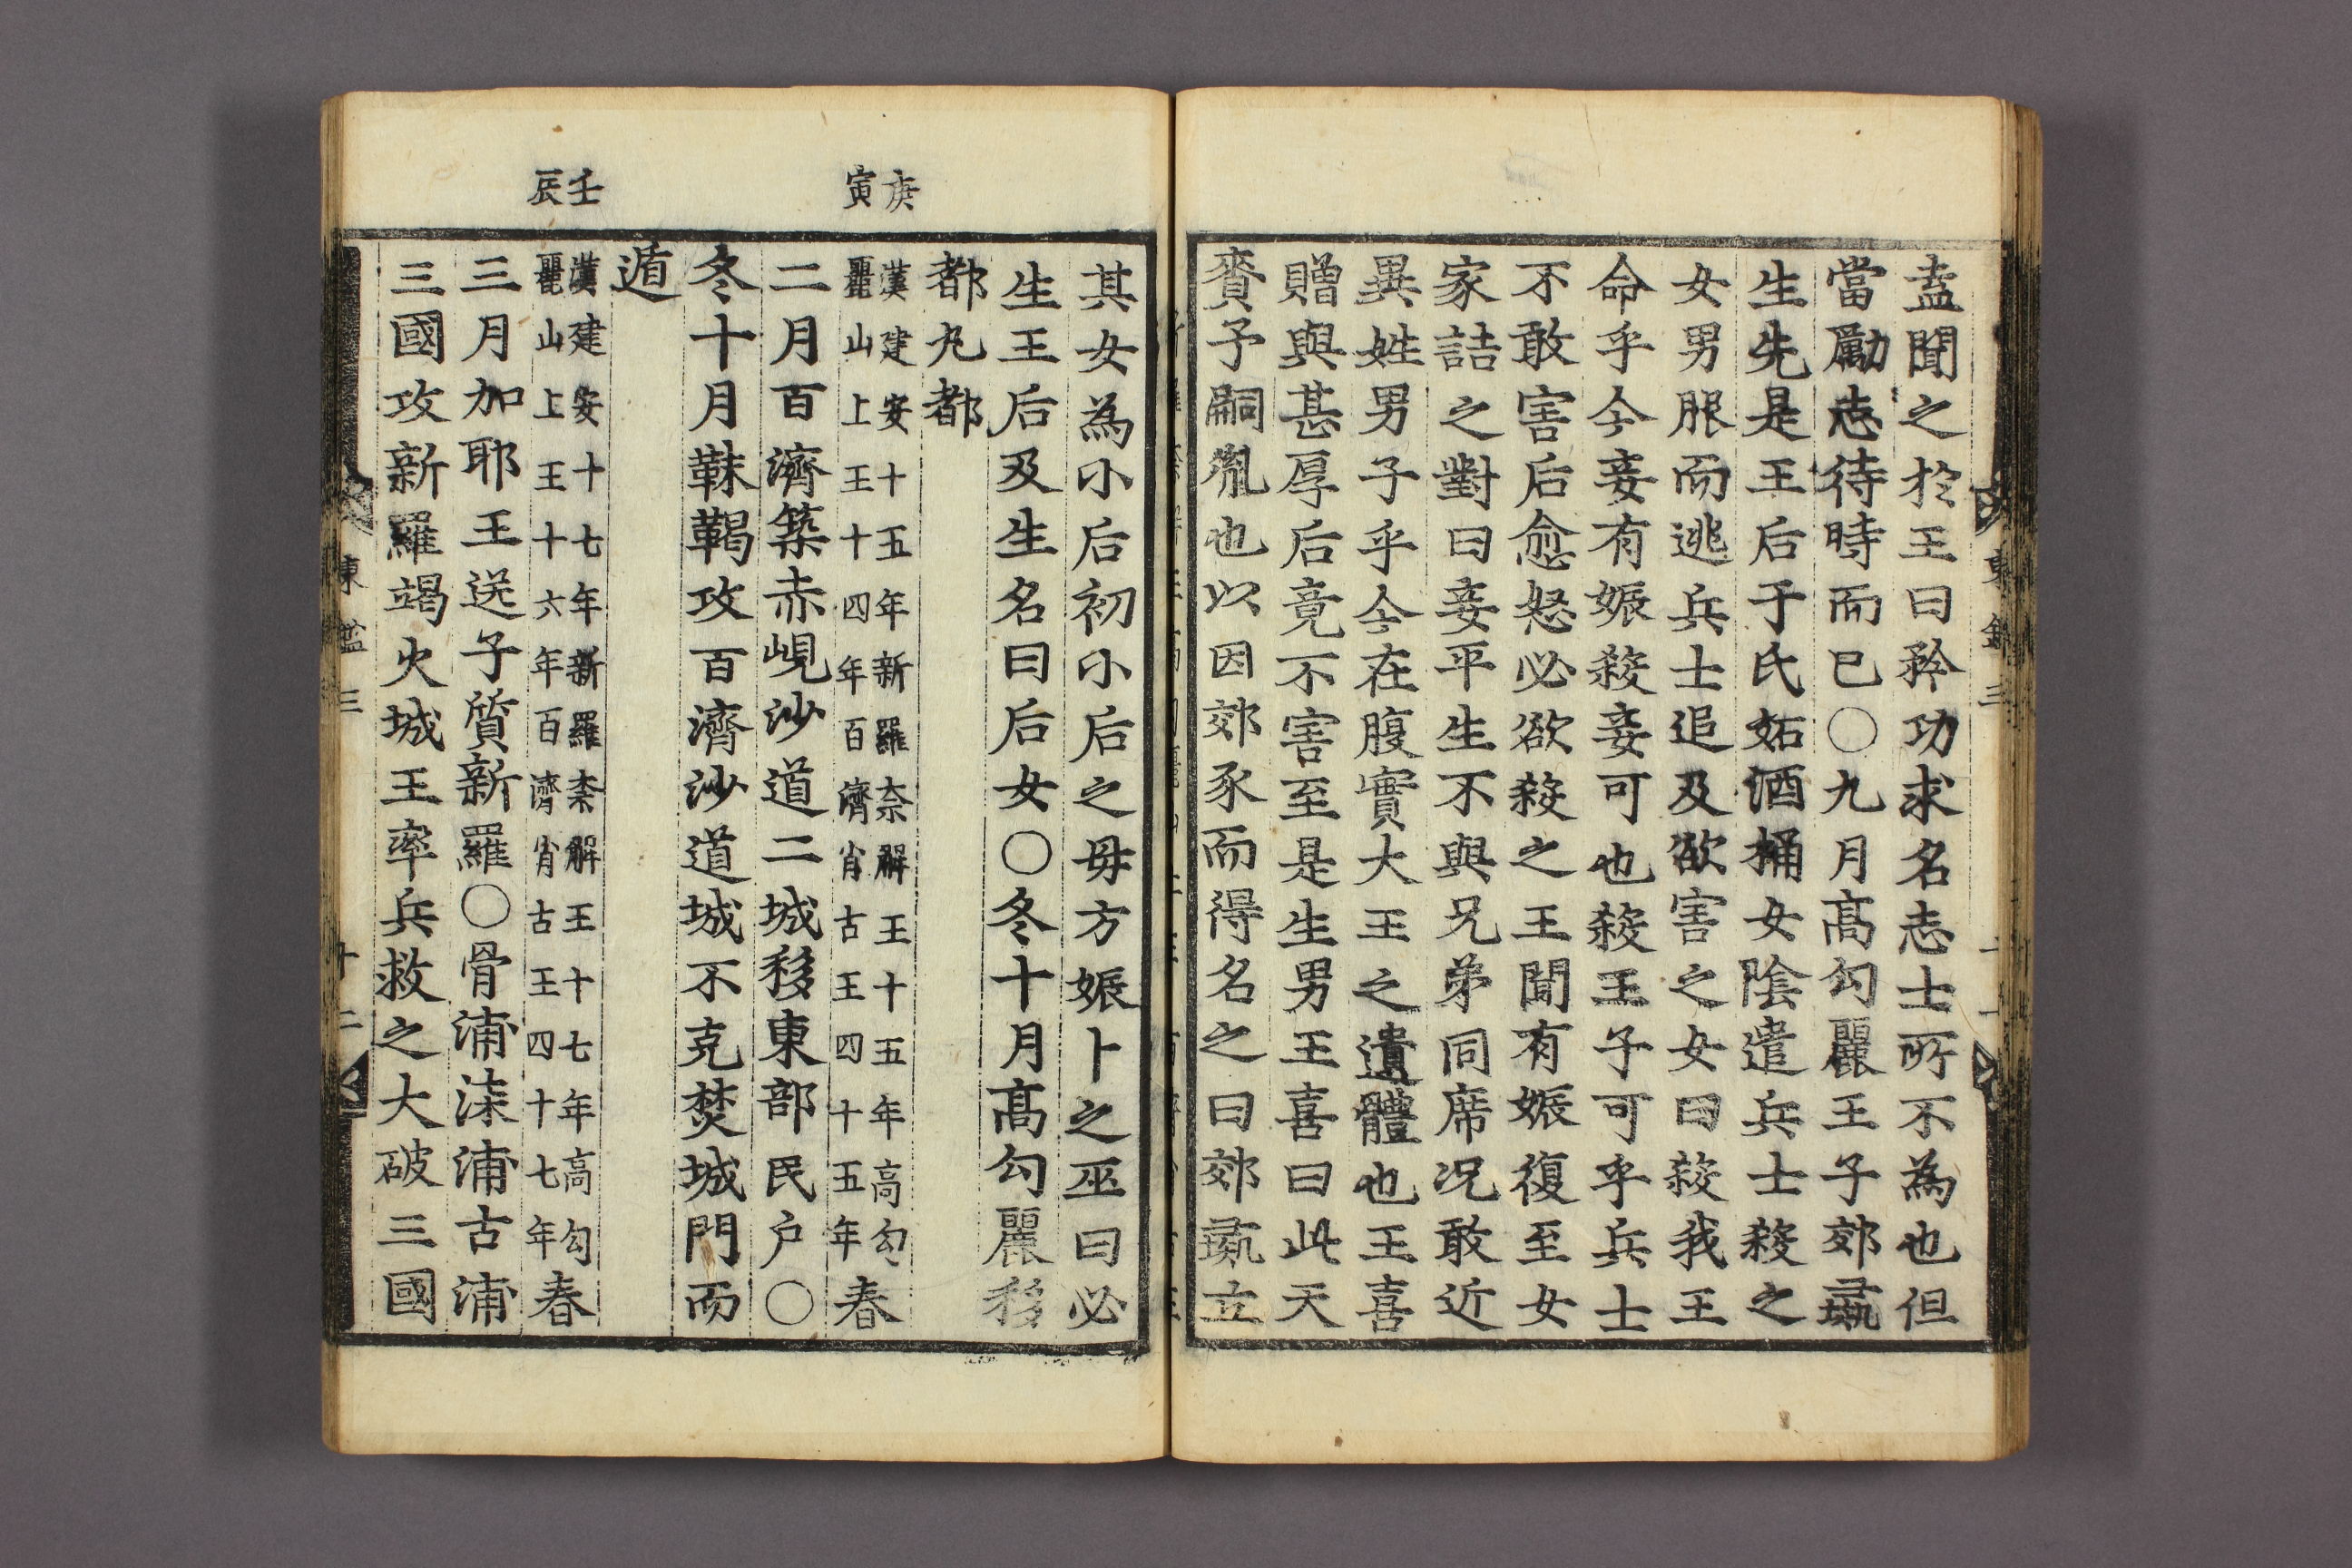 盍聞之於王曰矜功求名志士所不為也但
當勵志待時而已〇九月高勾麗王子郊彘
生先是王后于氏妬酒桶女陰遣兵士殺之
女男服而逃兵士追及欲害之女曰殺我王
命乎今妾有娠殺妾可也殺王子可乎兵士
不敢害后愈怒必欲殺之王聞有娠復至女
家詰之對曰妾平生不與兄弟同席况敢近
異姓男子乎今在腹實大王之遺體也王喜
贈與甚厚后竟不害至是生男王喜曰此天
賚予嗣胤也以因郊豕而得名之曰郊彘立
其女為小后初小后之母方娠卜之巫曰必
生王后及生名曰后女〇冬十月高勾麗移
都丸都
庚寅
漢建安十五年新羅柰解王十五年高勾
麗山上王十四年百濟肖古王四十五年春
二月百濟築赤峴沙道二城移東部民戶〇
冬十月靺鞨攻百濟沙道城不克焚城門而
遁
壬辰
漢建安十七年新羅柰解王十七年高勾
麗山上王十六年百濟肖古王四十七年春
三月加耶王送子質新羅〇骨浦柒浦古浦
三國攻新羅竭火城王率兵救之大破三國
東鑑三
十二